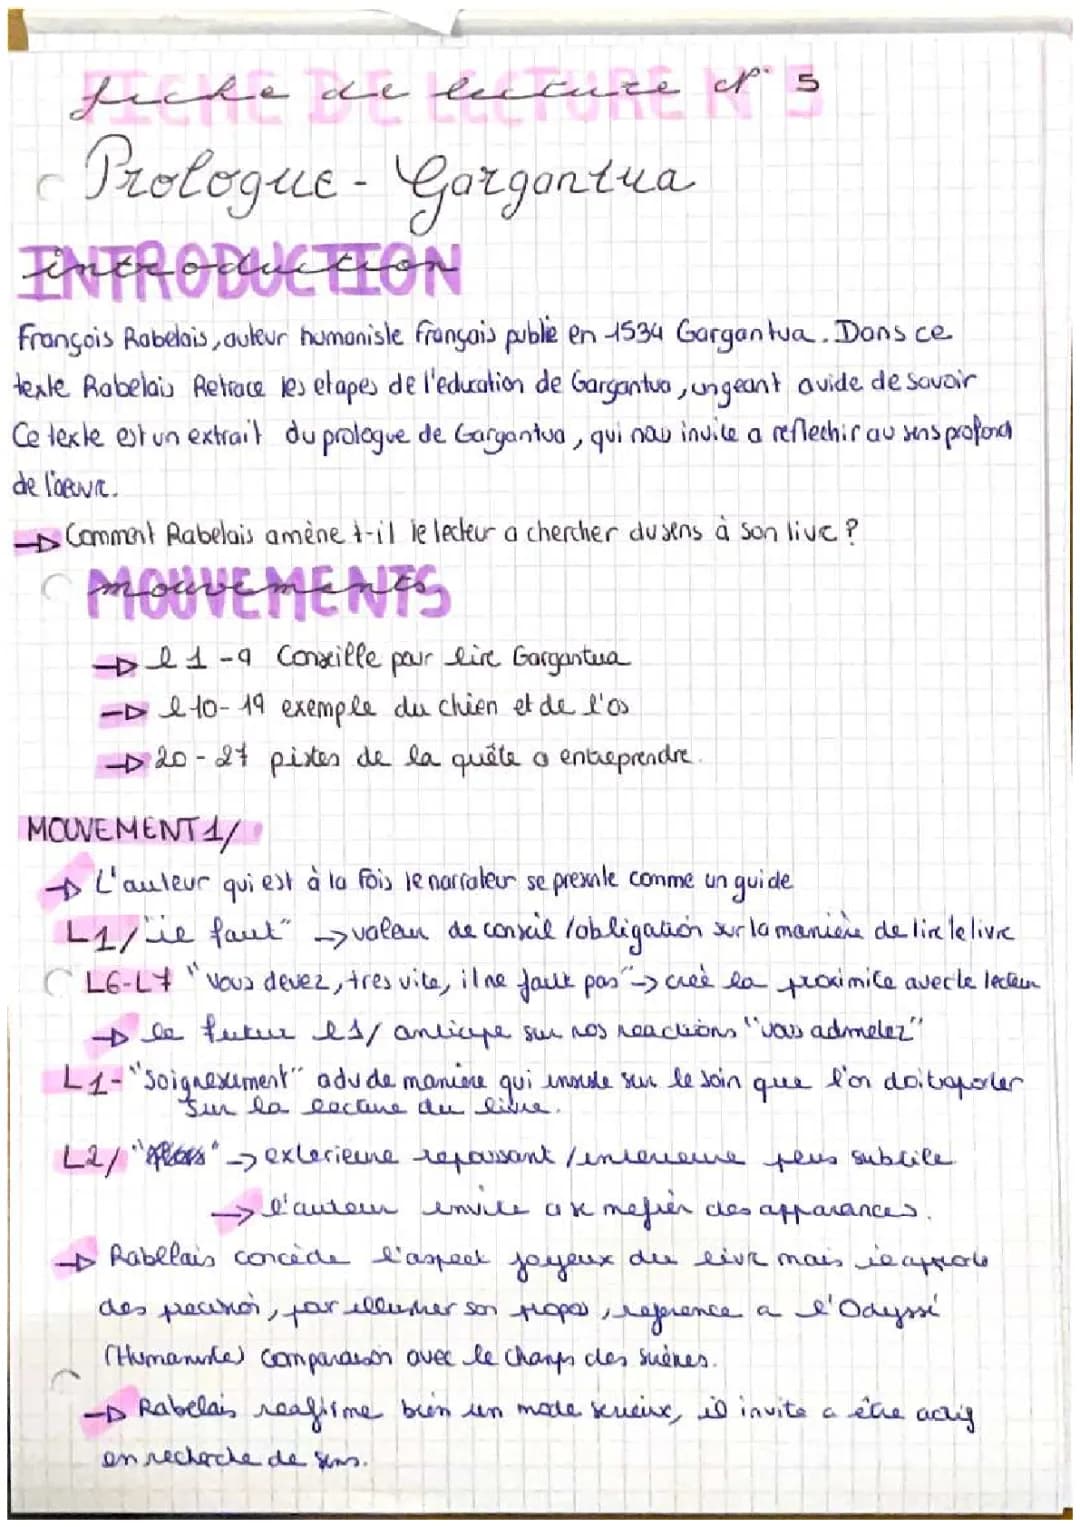 fiche de lecture N° 5
Prologue - Gargantua
introduction
François Rabelais, auteur humaniste français publie en 1534 Gargantua. Dans ce
texte Rabelais Retrace les etapes de l'education de Gargantua, un geant avide de savoir
Ce texte est un extrait du prologue de Gargantua, qui nous invite a reflechir au sens profond
de l'œuvre.
→ Comment Rabelais amène t-il le lecteur a chercher du sens à son livre ?
mouvements
→ l 1-9 Conseille pour lire Gargantua
→ l 10-19 exemple du chien et de l'os
→ 20-27 pistes de la quête a entreprendre.
MOUVEMENT 1/
→ L'auteur qui est à la fois le narrateur se presente comme un guide
L1/ "il faut" → valeur de conseil / obligation sur la manière de lire le livre
L6-L7 "Vous devez, tres vite, il ne faut pas" → creé la proximite avec le lecteur
→ le futur l1/ anticipe sur nos reactions "vous admetez"
L1- "Soigneusement" adv de maniere qui insiste sur le soin que l'on doit aporter
sur la lecture du livre.
L2/ → exterieure repoussant / interieure plus subtile
→ l'auteur invite a se mefier des apparances.
→ Rabelais concède l'aspect joyeux du livre mais il apporte
des precision, par illustrer son propos, reference a l'Odyssé
(Humaniste) comparaison avec le champs des sirènes.
→ Rabelais reafirme bien un mode serieux, il invite a être actif
en recherche de sens.